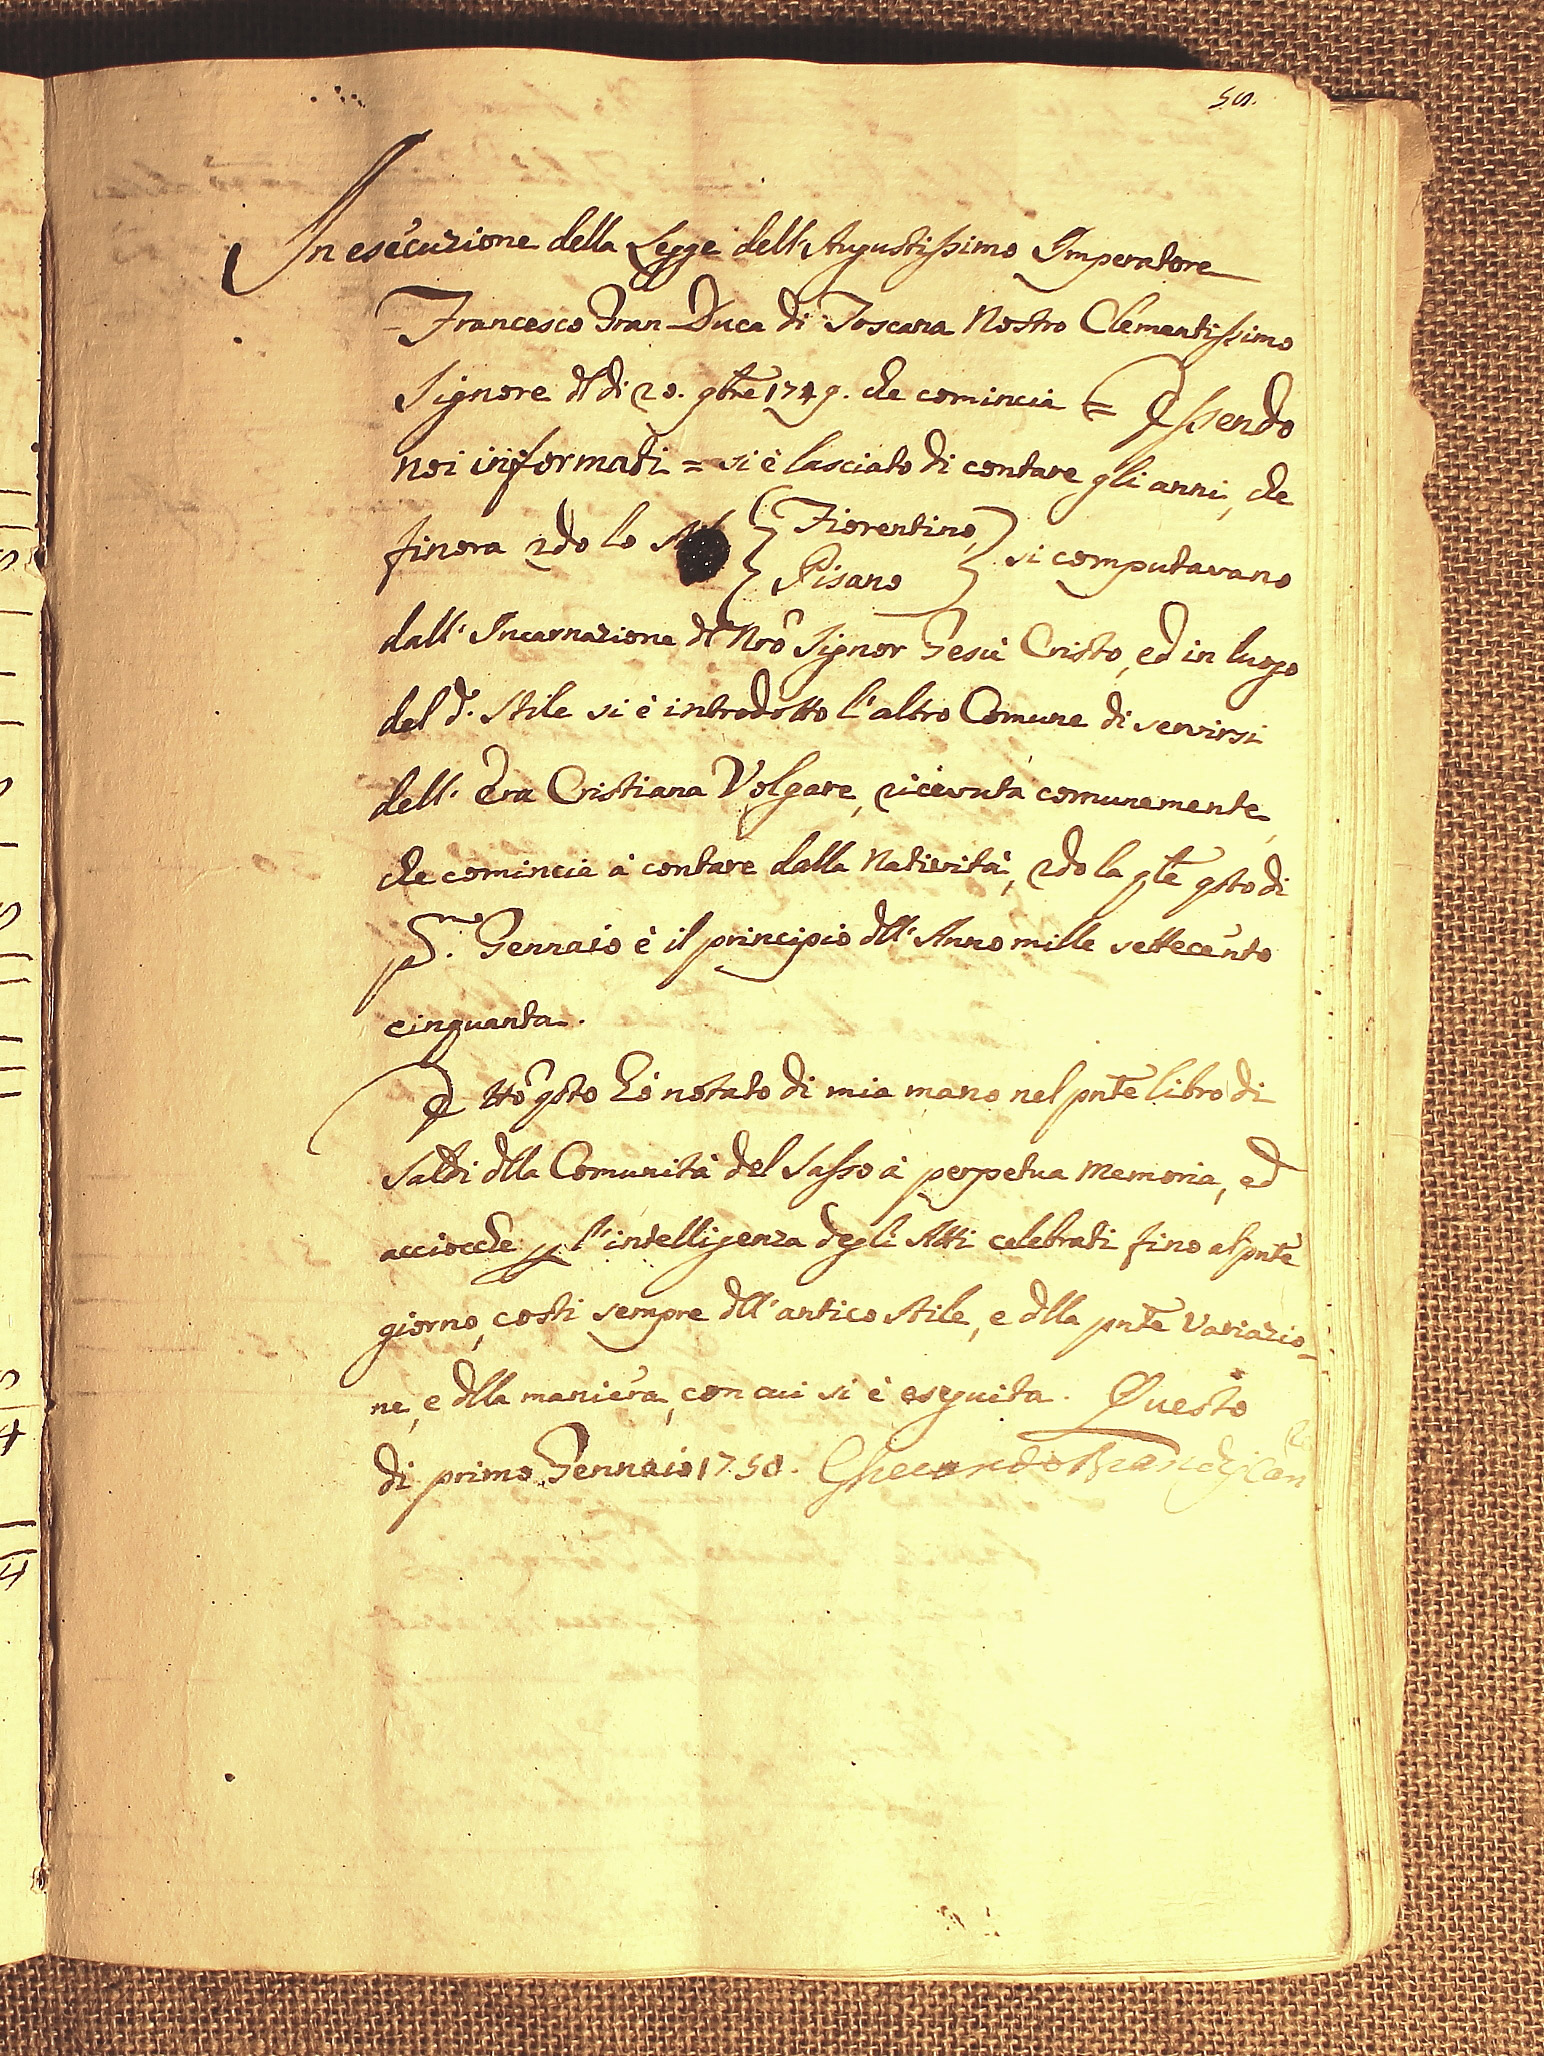 50.
In esecuzione della Legge dell'Augustissimo Imperatore
Francesco Gran-Duca di Toscana Nostro Clementissimo
Signore dl di 20. 9bre 1749. che comincia = Essendo
noi informati = si è lasciato di contare gli anni, che
finora 2do lo { Fiorentino,
Pisano } si computavano
dall'Incarnazione dl Nro Signor Gesù Cristo, ed in luogo
del d. Stile si è introdotto l'altro Comune di servirsi
dell'Era Cristiana Volgare, ricevuta comunemente,
che comincia à contare dalla Natività, 2do la qle qsto di
Pmo. Gennaio è il principio dll'Anno mille settecento
cinquanta.
E tto qsto hò notato di mia mano nel pnte libro di
Saldi dlla Comunità del Sasso à perpetua Memoria, ed
acciocche p l'intelligenza degli Atti celebrati fino al pnte
giorno, costi sempre dll'antico stile, e dlla pnte Variazio-
ne, e dlla maniera, con cui si è eseguita. Questo
di primo Gennaio 1750.